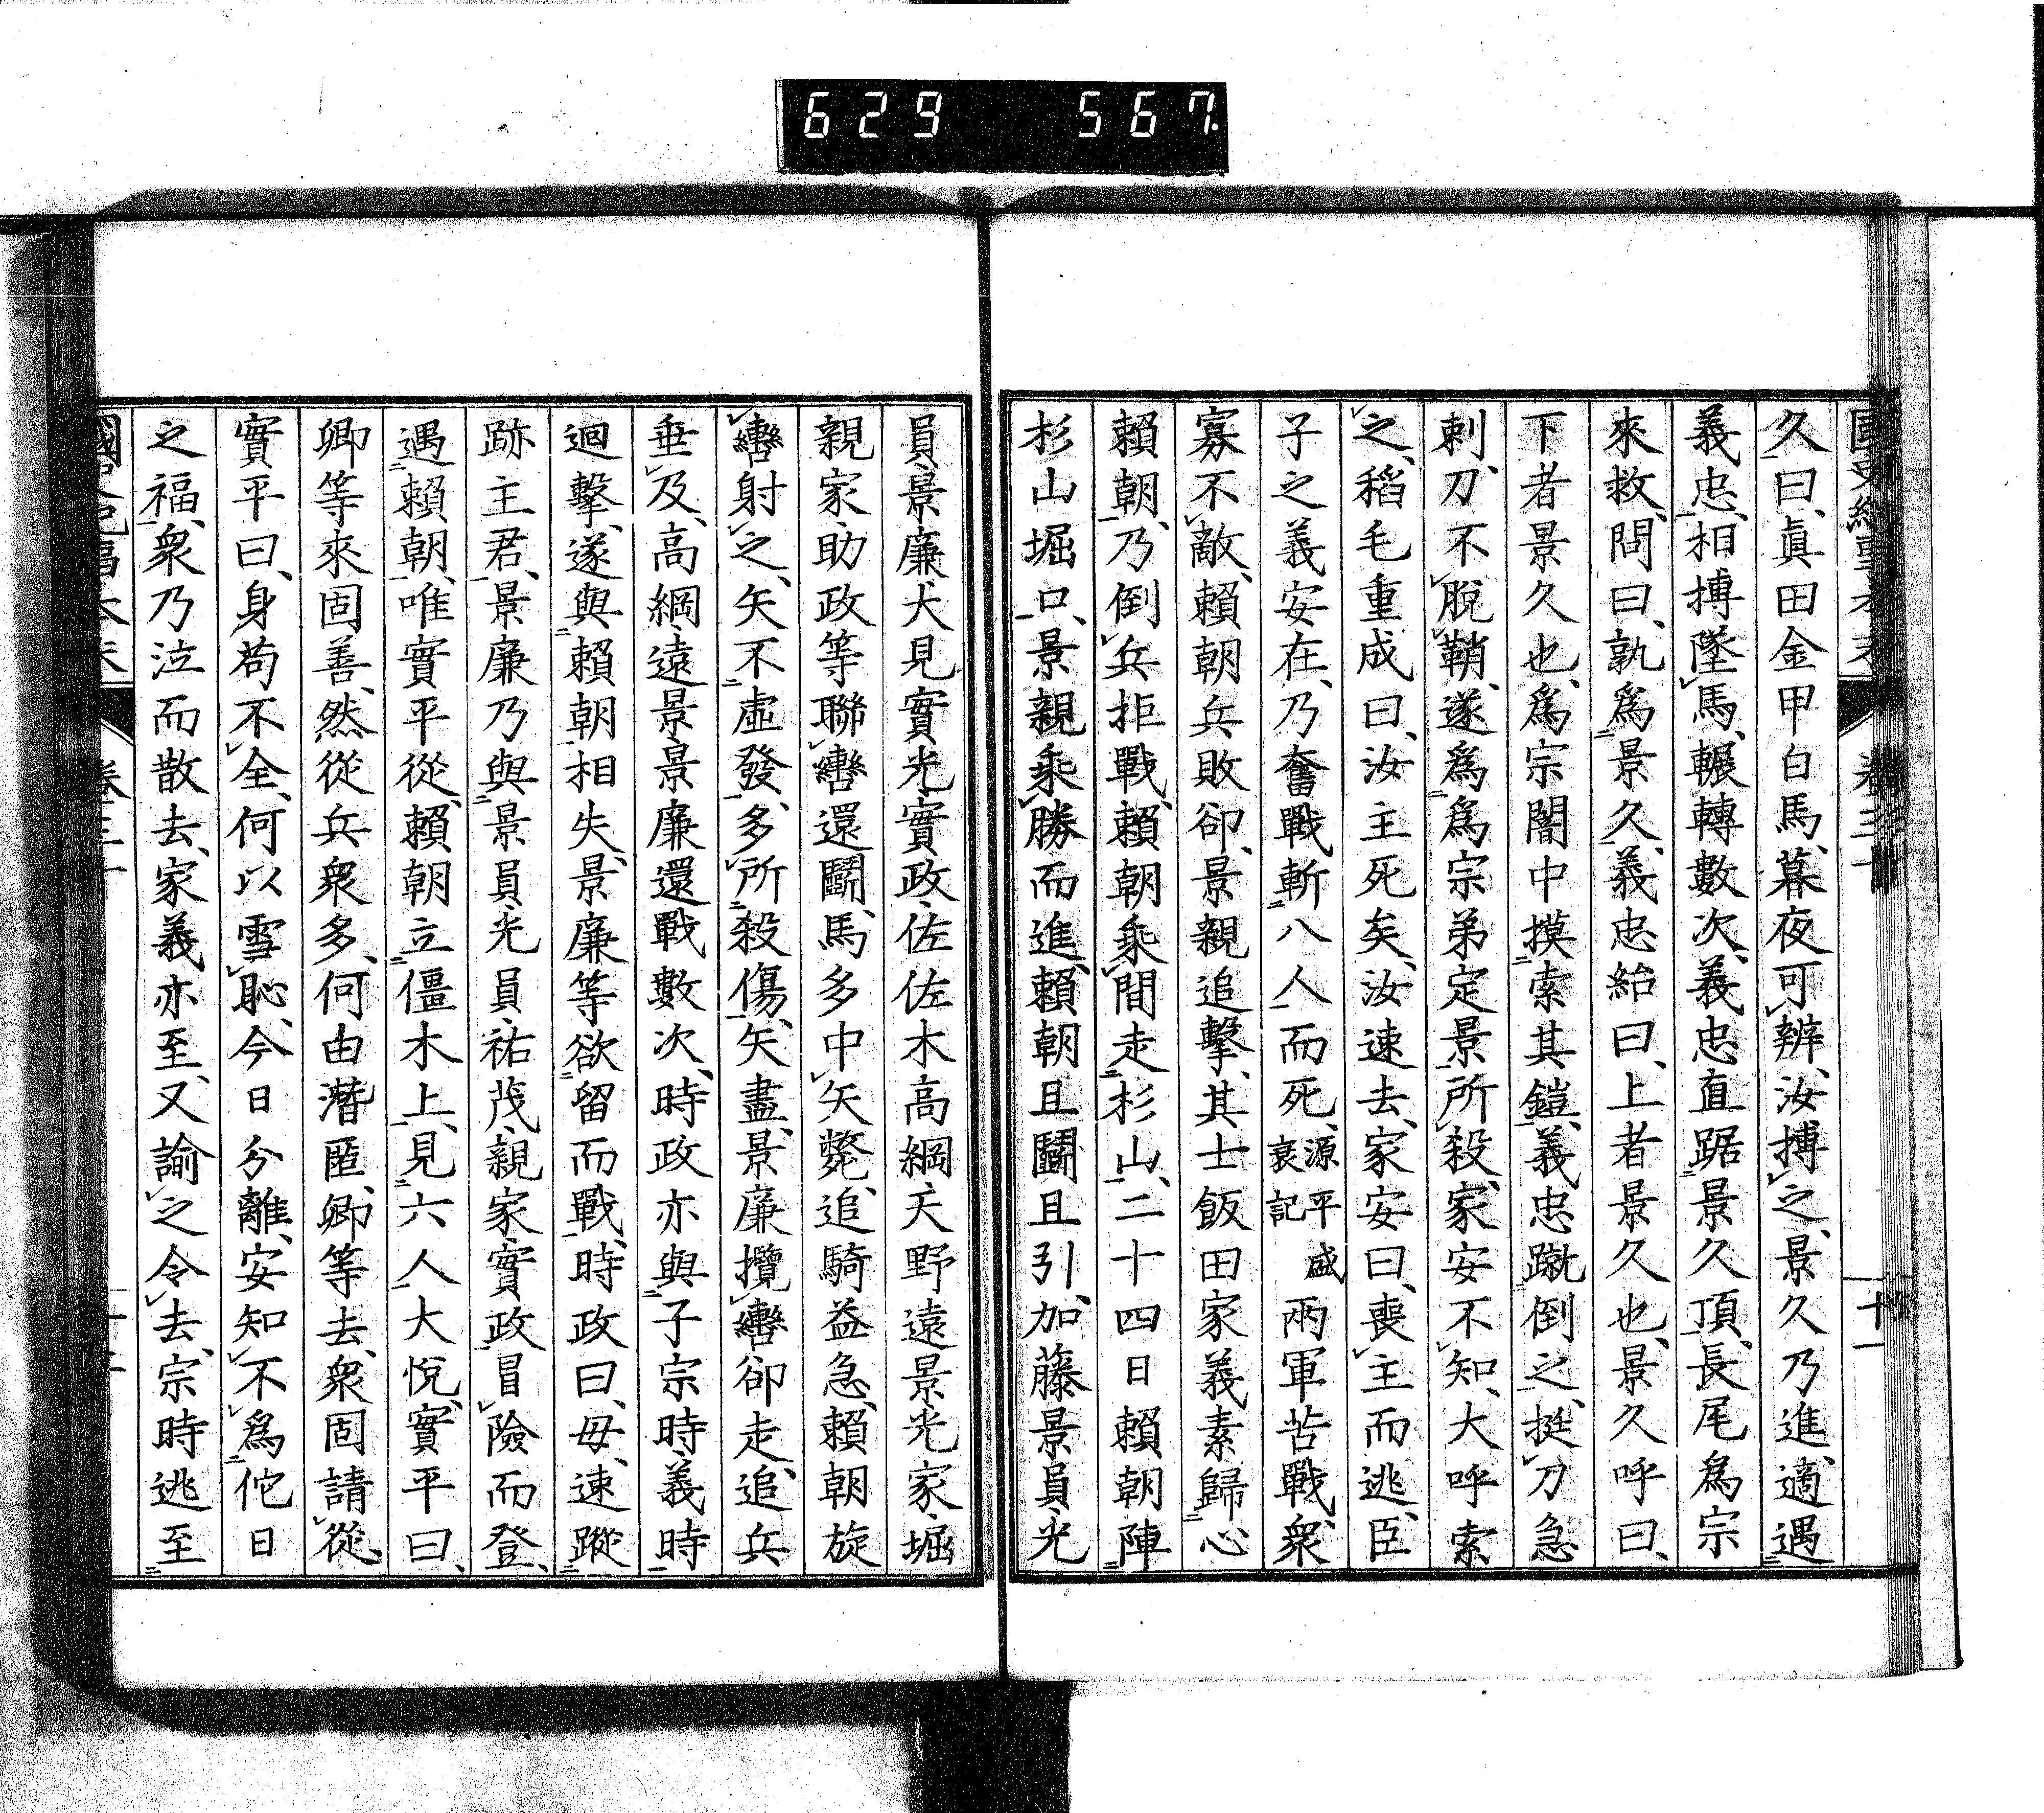 629 567
久曰、眞田金甲白馬、暮夜可辨、汝搏之、景久乃進、適遇
義忠、相搏墜馬、輾轉數次、義忠直踞景久頂、長尾爲宗
來救、問曰、孰爲景久、義忠紿曰、上者景久也、景久呼曰、
下者景久也、爲宗闇中摸索其鎧、義忠蹴倒之、挺刀急
刺、刀不脫鞘、遂爲爲宗弟定景所殺、家安不知、大呼索
之、稻毛重成曰、汝主死矣、汝速去、家安曰、喪主而逃、臣
子之義安在、乃奮戰、斬八人而死、源平盛衰記兩軍苦戰、衆
寡不敵、賴朝兵敗卻、景親追擊、其士飯田家義素歸心
賴朝、乃倒兵拒戰、賴朝乘間走杉山、二十四日賴朝陣
杉山堀口、景親乘勝而進、賴朝且鬭且引、加藤景員光
員景廉大見實光實政佐佐木高綱天野遠景光家堀
親家助政等聯轡還鬭、馬多中矢斃、追騎益急、賴朝旋
轡射之、矢不虛發、多所殺傷、矢盡、景廉攬轡卻走、追兵
垂及、高綱遠景景廉還戰數次、時政亦與子宗時義時
迴擊、遂與賴朝相失、景廉等欲留而戰、時政曰、毋、速蹤
跡主君、景廉乃與景員光員祐茂親家實政冒險而登、
遇賴朝、唯實平從、賴朝立僵木上、見六人大悅、實平曰、
卿等來固善、然從兵衆多、何由潛匿、卿等去、衆固請從、
實平曰、身苟不全、何以雪恥、今日分離、安知不爲佗日
之福、衆乃泣而散去、家義亦至、又諭之令去、宗時逃至